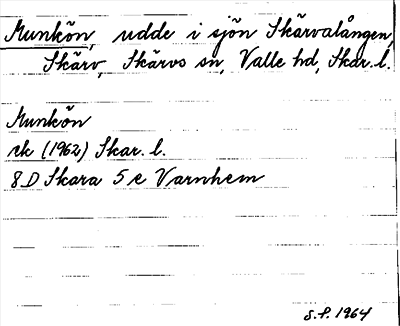 Munkön, udde i sjön Skärvalången,
Skärv, Skärvs sn, Valle hd, Skar. l.
Munkön
ek (1962) Skar. l.
8D Skara 5e Varnhem
S.P. 1964